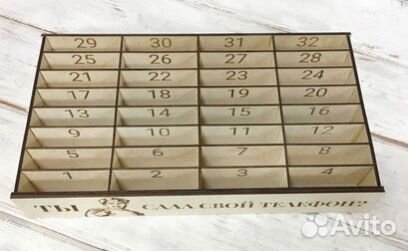 29 30 31 32
25 26 27 28
21 22 23 24
17 18 19 20
13 14 15 16
9 10 11 12
5 6 7 8
1 2 3 4
ТЫ СДАЛ СВОЙ ТЕЛЕФОН?
Avito